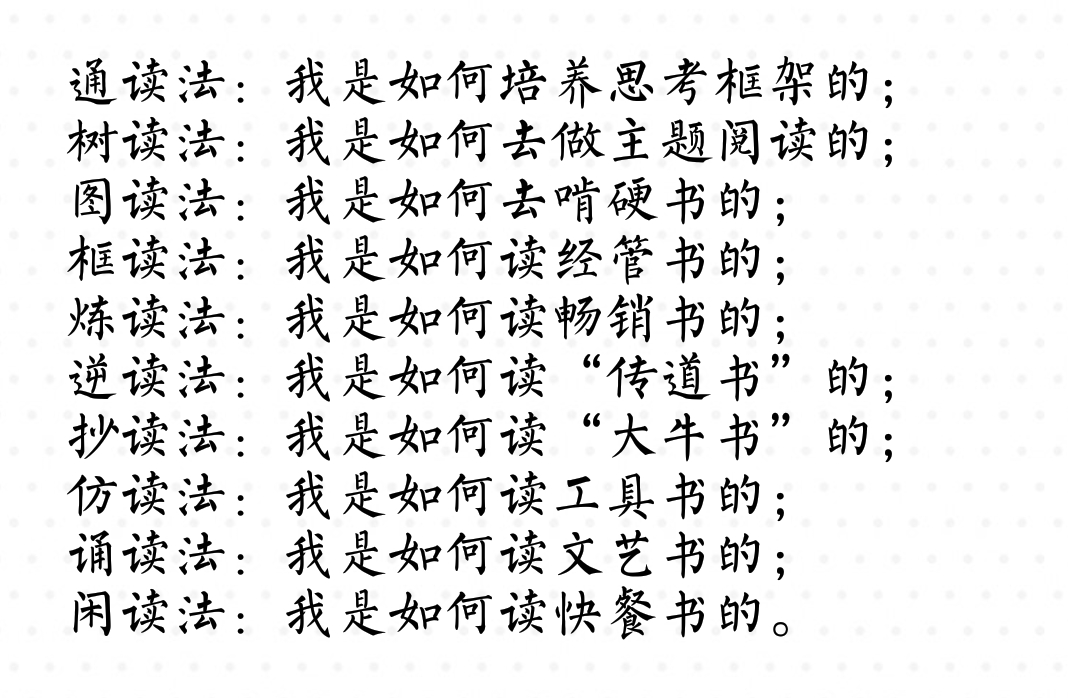 通读法：我是如何培养思考框架的；
树读法：我是如何去做主题阅读的；
图读法：我是如何去啃硬书的；
框读法：我是如何读经管书的；
炼读法：我是如何读畅销书的；
逆读法：我是如何读“传道书”的；
抄读法：我是如何读“大牛书”的；
仿读法：我是如何读工具书的；
诵读法：我是如何读文艺书的；
闲读法：我是如何读快餐书的。